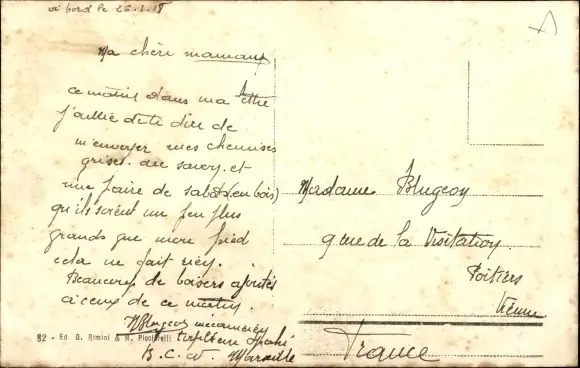 à bord le 26.1.18
Ma chère maman
ce matin dans ma lettre
j'ai de te dire de
m'envoyer mes chemises
grises du savoy et
une paire de sabots (en bois)
qu'ils soient un peu plus
grands que mon pied
cela ne fait rien.
Beaucoup de baisers ajoutés
à ceux de ce matin
Blugeon mécanicien
B. C. Marseille
82 - Ed G. Rimini & N.
Madame Blugeon
9 rue de la Visitation
Poitiers
Vienne
France